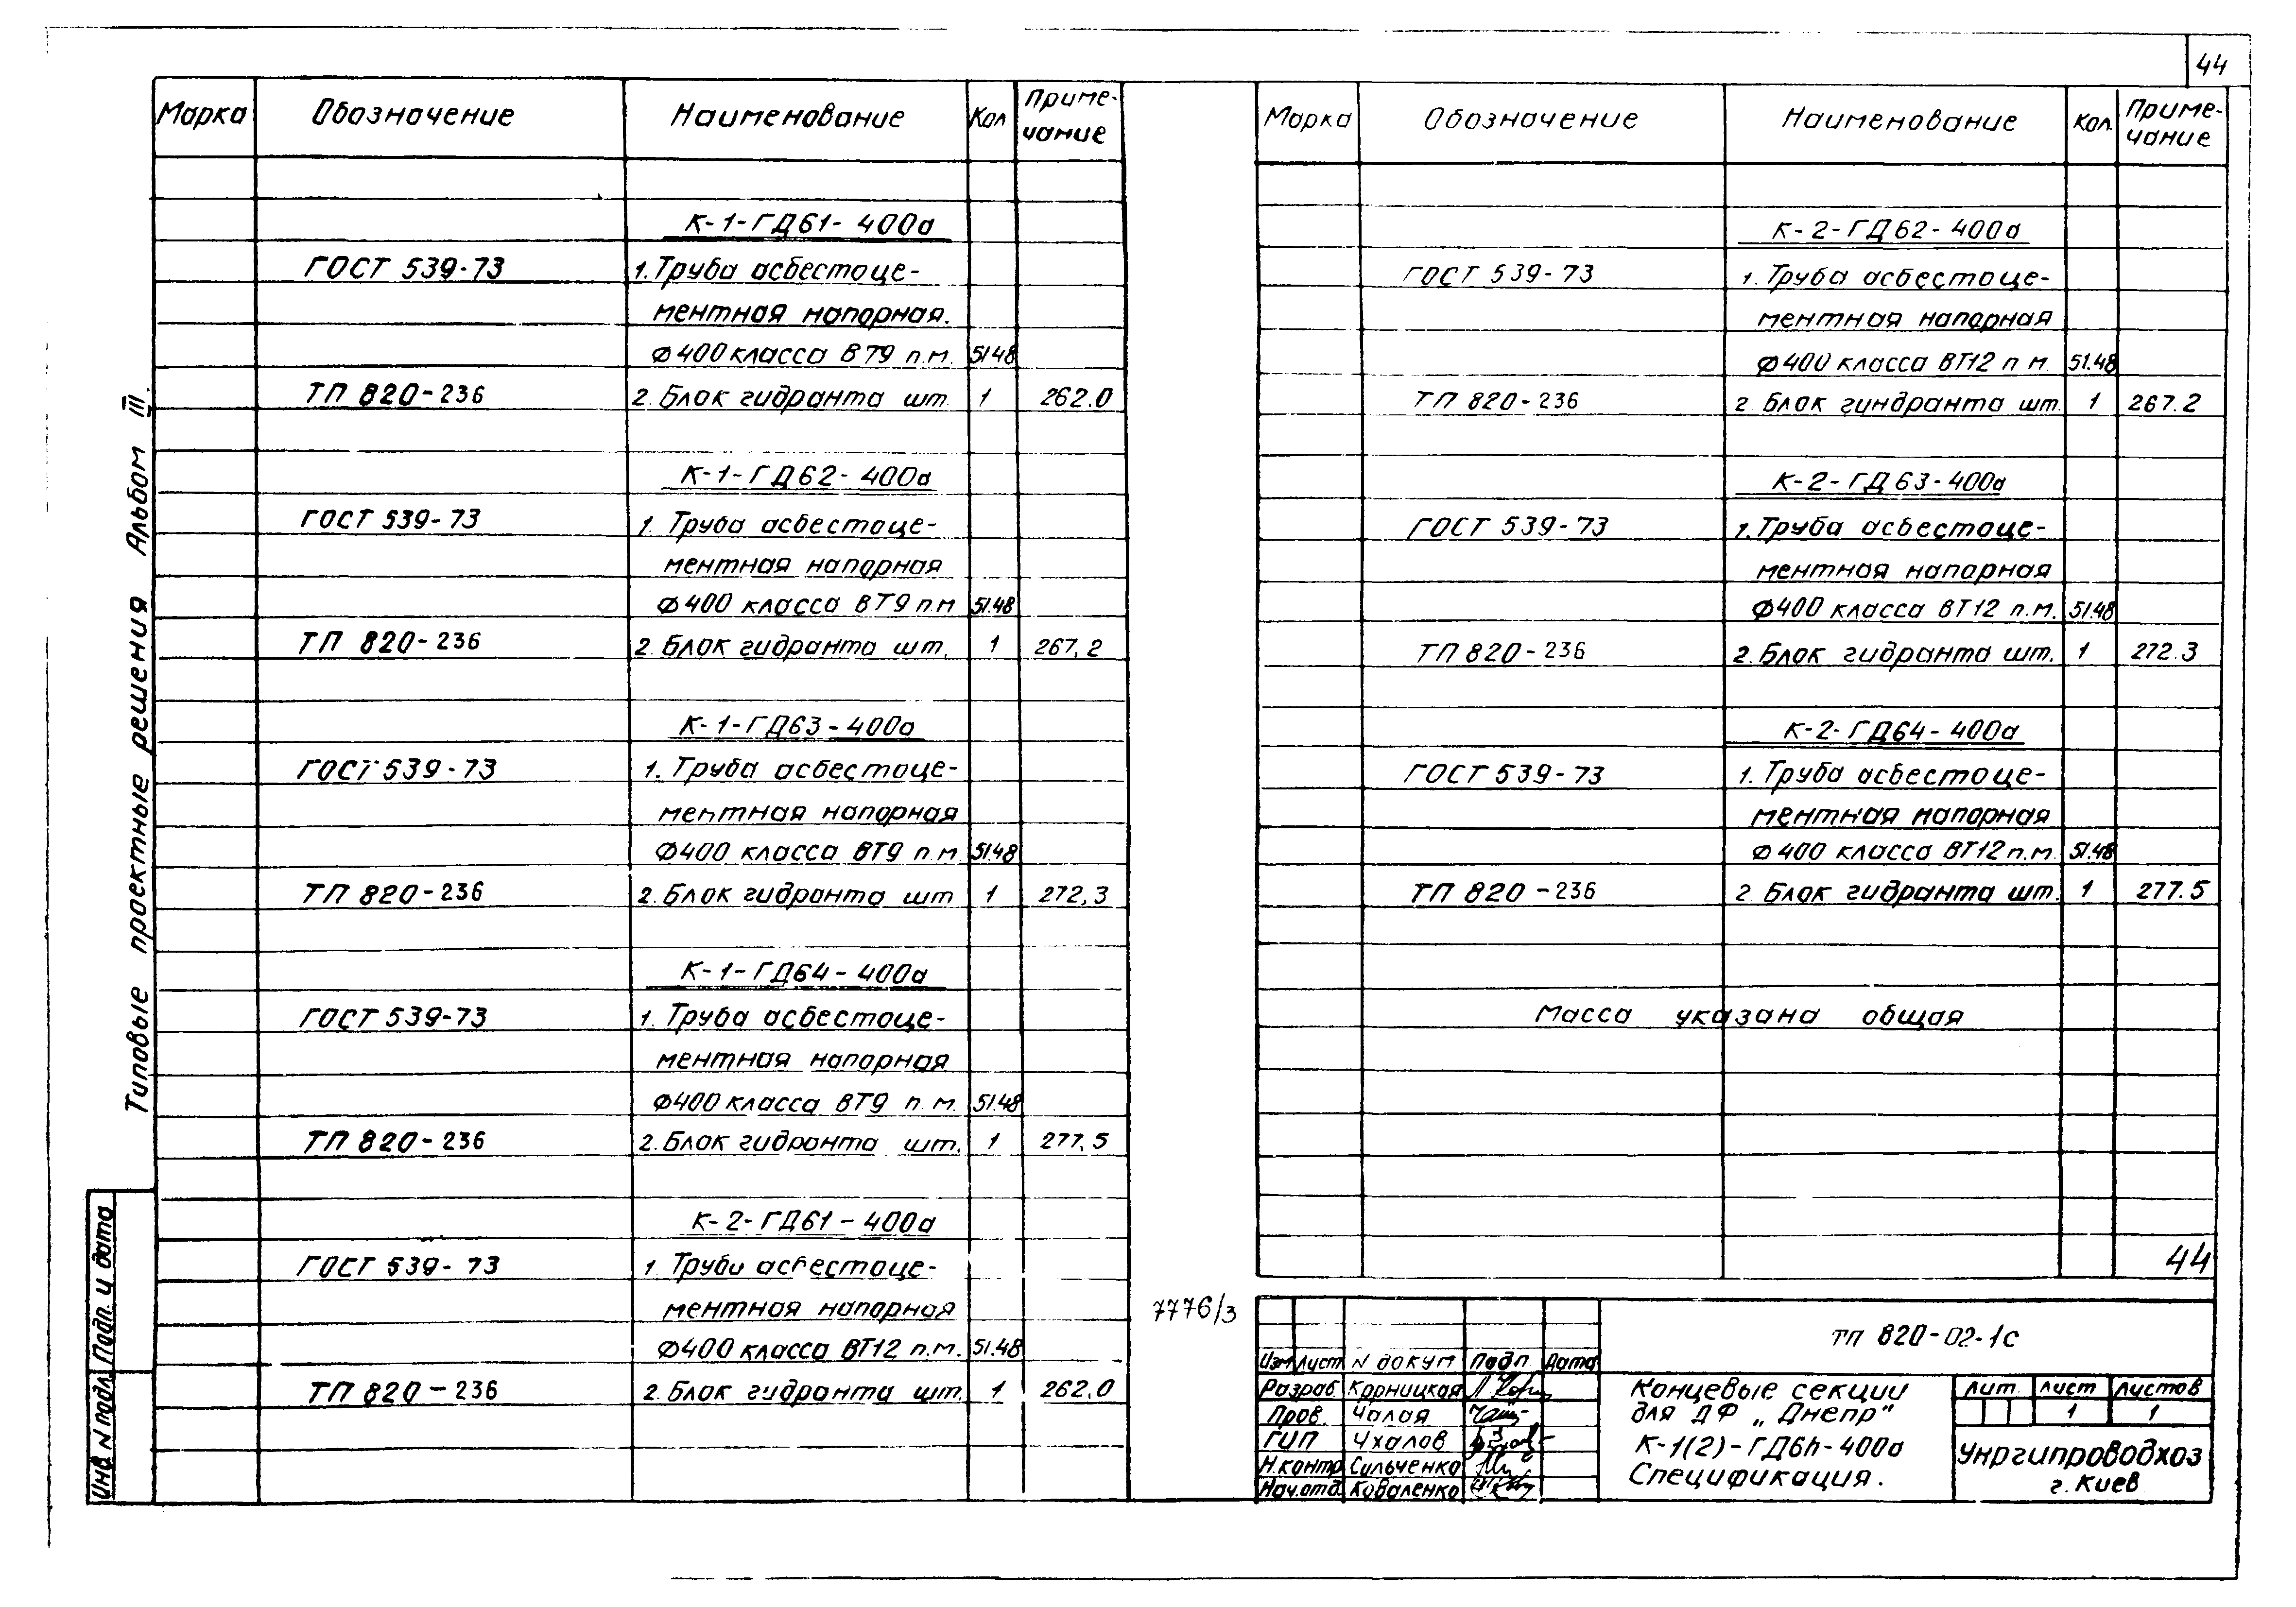 44
Марка Обозначение Наименование Кол Приме-
чание
К-1-ГД61-400а
ГОСТ 539-73 1. Труба асбестоце-
ментная напорная.
Ф400 класса ВТ9 п.м. 51.48
ТП 820-236 2. Блок гидранта шт 1 262.0
К-1-ГД62-400а
ГОСТ 539-73 1. Труба асбестоце-
ментная напорная
Ф400 класса ВТ9 п.м 51.48
ТП 820-236 2. Блок гидранта шт. 1 267,2
К-1-ГД63-400а
ГОСТ 539-73 1. Труба асбестоце-
ментная напорная
Ф400 класса ВТ9 п.м 51.48
ТП 820-236 2. Блок гидранта шт 1 272,3
К-1-ГД64-400а
ГОСТ 539-73 1. Труба асбестоце-
ментная напорная
Ф400 класса ВТ9 п.м. 51.48
ТП 820-236 2. Блок гидранта шт. 1 277,5
К-2-ГД61-400а
ГОСТ 539-73 1 Труба асбестоце-
ментная напорная
Ф400 класса ВТ12 п.м. 51.48
ТП 820-236 2. Блок гидранта шт. 1 262,0
Марка Обозначение Наименование Кол. Приме-
чание
К-2-ГД62-400а
ГОСТ 539-73 1. Труба асбестоце-
ментная напорная
Ф400 класса ВТ12 п.м. 51.48
ТП 820-236 2 Блок гиндранта шт. 1 267.2
К-2-ГД63-400а
ГОСТ 539-73 1. Труба асбестоце-
ментная напорная
Ф400 класса ВТ12 п.м. 51.48
ТП 820-236 2. Блок гидранта шт. 1 272.3
К-2-ГД64-400а
ГОСТ 539-73 1. Труба асбестоце-
ментная напорная
Ф400 класса ВТ12 п.м. 51.48
ТП 820-236 2 Блок гидранта шт. 1 277.5
Масса указана общая
44
Типовые проектные решения Альбом III.
Инв N подл. Подп. и дата
7776/3
ТП 820-02-1с
Изм Лист N докум Подп Дата
Разраб. Корницкая
Пров. Чалая
ГИП Чхалов
Н.контр Сильченко
Нач.отд. Коваленко
Концевые секции
для ДФ „Днепр"
К-1(2)-ГД6h-400а
Спецификация.
Лит. Лист Листов
1 1
Укргипроводхоз
г. Киев